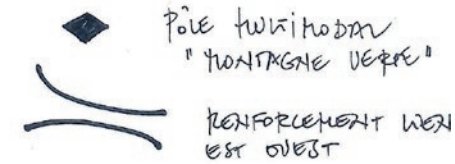 PÔLE MULTIMODAL
"MONTAGNE VERTE"
RENFORCEMENT LIEN
EST OUEST